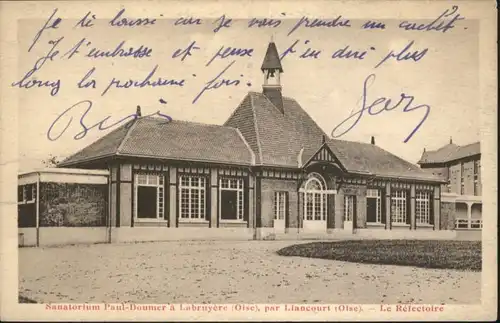 je te laisse car je vais prendre un cachet ?
Je t'embrasse et pense t'en dire plus
long la prochaine fois.
Bis
Sanatorium Paul-Doumer à Labruyère (Oise), par Liancourt (Oise). - Le Réfectoire